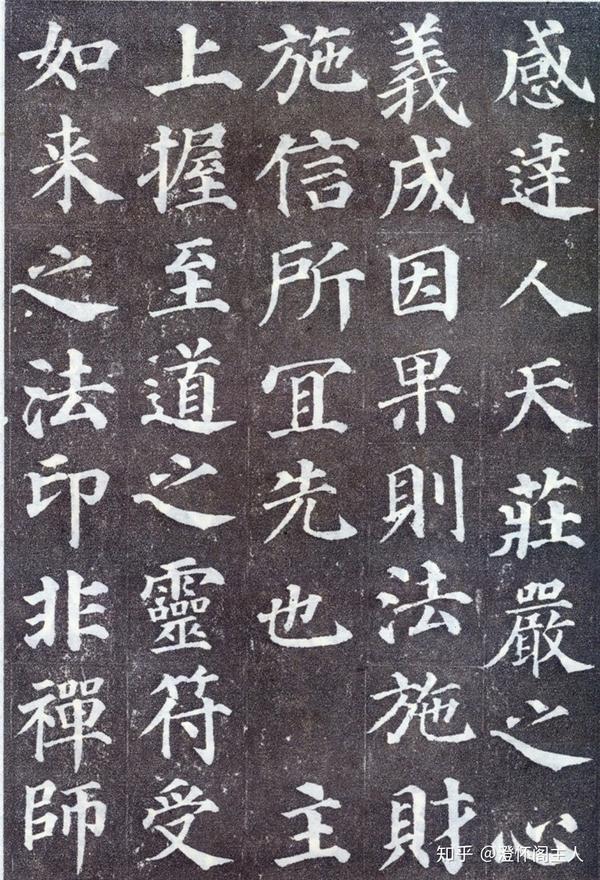 感達人天莊嚴之心
義成因果則法施財
施信所冝先也 主
上握至道之靈符受
如来之法印非禪師
知乎 @澄怀阁主人